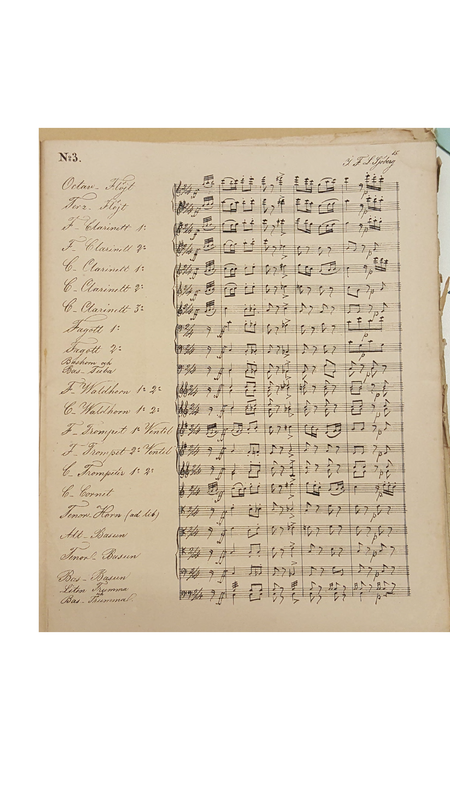 No 3.
15
J. F. S. Sjöberg
Octav-Flöjt
Terz-Flöjt
F-Clarinett 1º
F-Clarinett 2º
C-Clarinett 1º
C-Clarinett 2º
C-Clarinett 3º
Fagott 1º
Fagott 2º
Bas-Tuba
F-Waldhorn 1º 2º
C-Waldhorn 1º 2º
F-Trompet 1º Ventil
F-Trompet 2º Ventil
C-Trompeter 1º 2º
C-Cornet
Tenor-Horn (ad lib)
Alt-Basun
Tenor-Basun
Bas-Basun
Liten Trumma
Bas-Trumma